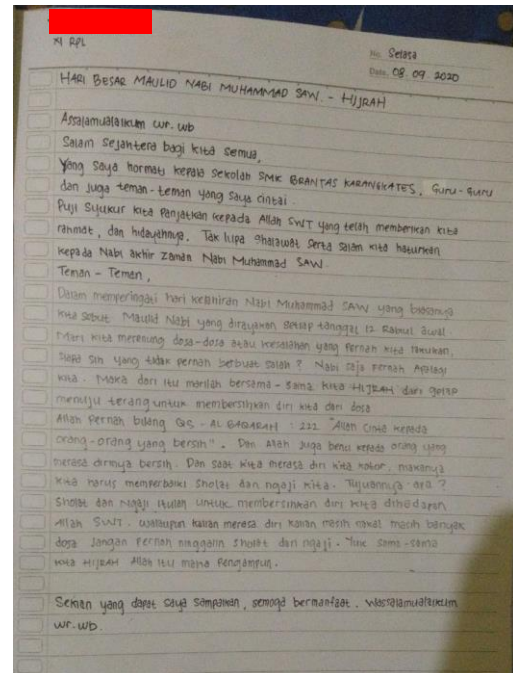 XI RPL
No. Selasa
Date. 08 09 2020
HARI BESAR MAULID NABI MUHAMMAD SAW. - HIJRAH
Assalamualaikum wr. wb
Salam sejahtera bagi kita semua,
Yang saya hormati kepala sekolah SMK BRANTAS KARANGKATES, Guru-guru
dan juga teman-teman yang saya cintai.
Puji Syukur kita Panjatkan kepada Allah SWT yang telah memberikan kita
rahmat, dan hidayahnya. Tak lupa Sholawat serta salam kita haturkan
kepada Nabi akhir zaman Nabi Muhammad SAW.
Teman-Teman,
Dalam memperingati hari kelahiran Nabi Muhammad SAW yang biasanya
kita sebut Maulid Nabi yang dirayakan setiap tanggal 12 Rabiul awal.
Mari kita merenung dosa-dosa atau kesalahan yang pernah kita lakukan.
Siapa sih yang tidak pernah berbuat salah? Nabi saja pernah Apalagi
kita. Maka dari itu marilah bersama-sama kita HIJRAH dari gelap
menuju terang untuk membersihkan diri kita dari dosa
Allah Pernah bilang QS - AL BAQARAH : 222 "Allah Cinta kepada
orang-orang yang bersih". Dan Allah juga benci kepada orang yang
merasa dirinya bersih. Dan saat kita merasa diri kita kotor, makanya
kita harus memperbaiki sholat dan ngaji kita. Tujuannya apa?
Sholat dan Ngaji itulah untuk membersihkan diri kita dihadapan
Allah SWT. Walaupun kalian merasa diri kalian masih nakal masih banyak
dosa jangan pernah ninggalin sholat dan ngaji. Yuk sama-sama
kita HIJRAH Allah itu maha Pengampun.
Sekian yang dapat saya sampaikan, semoga bermanfaat. Wassalamualaikum
wr.wb.